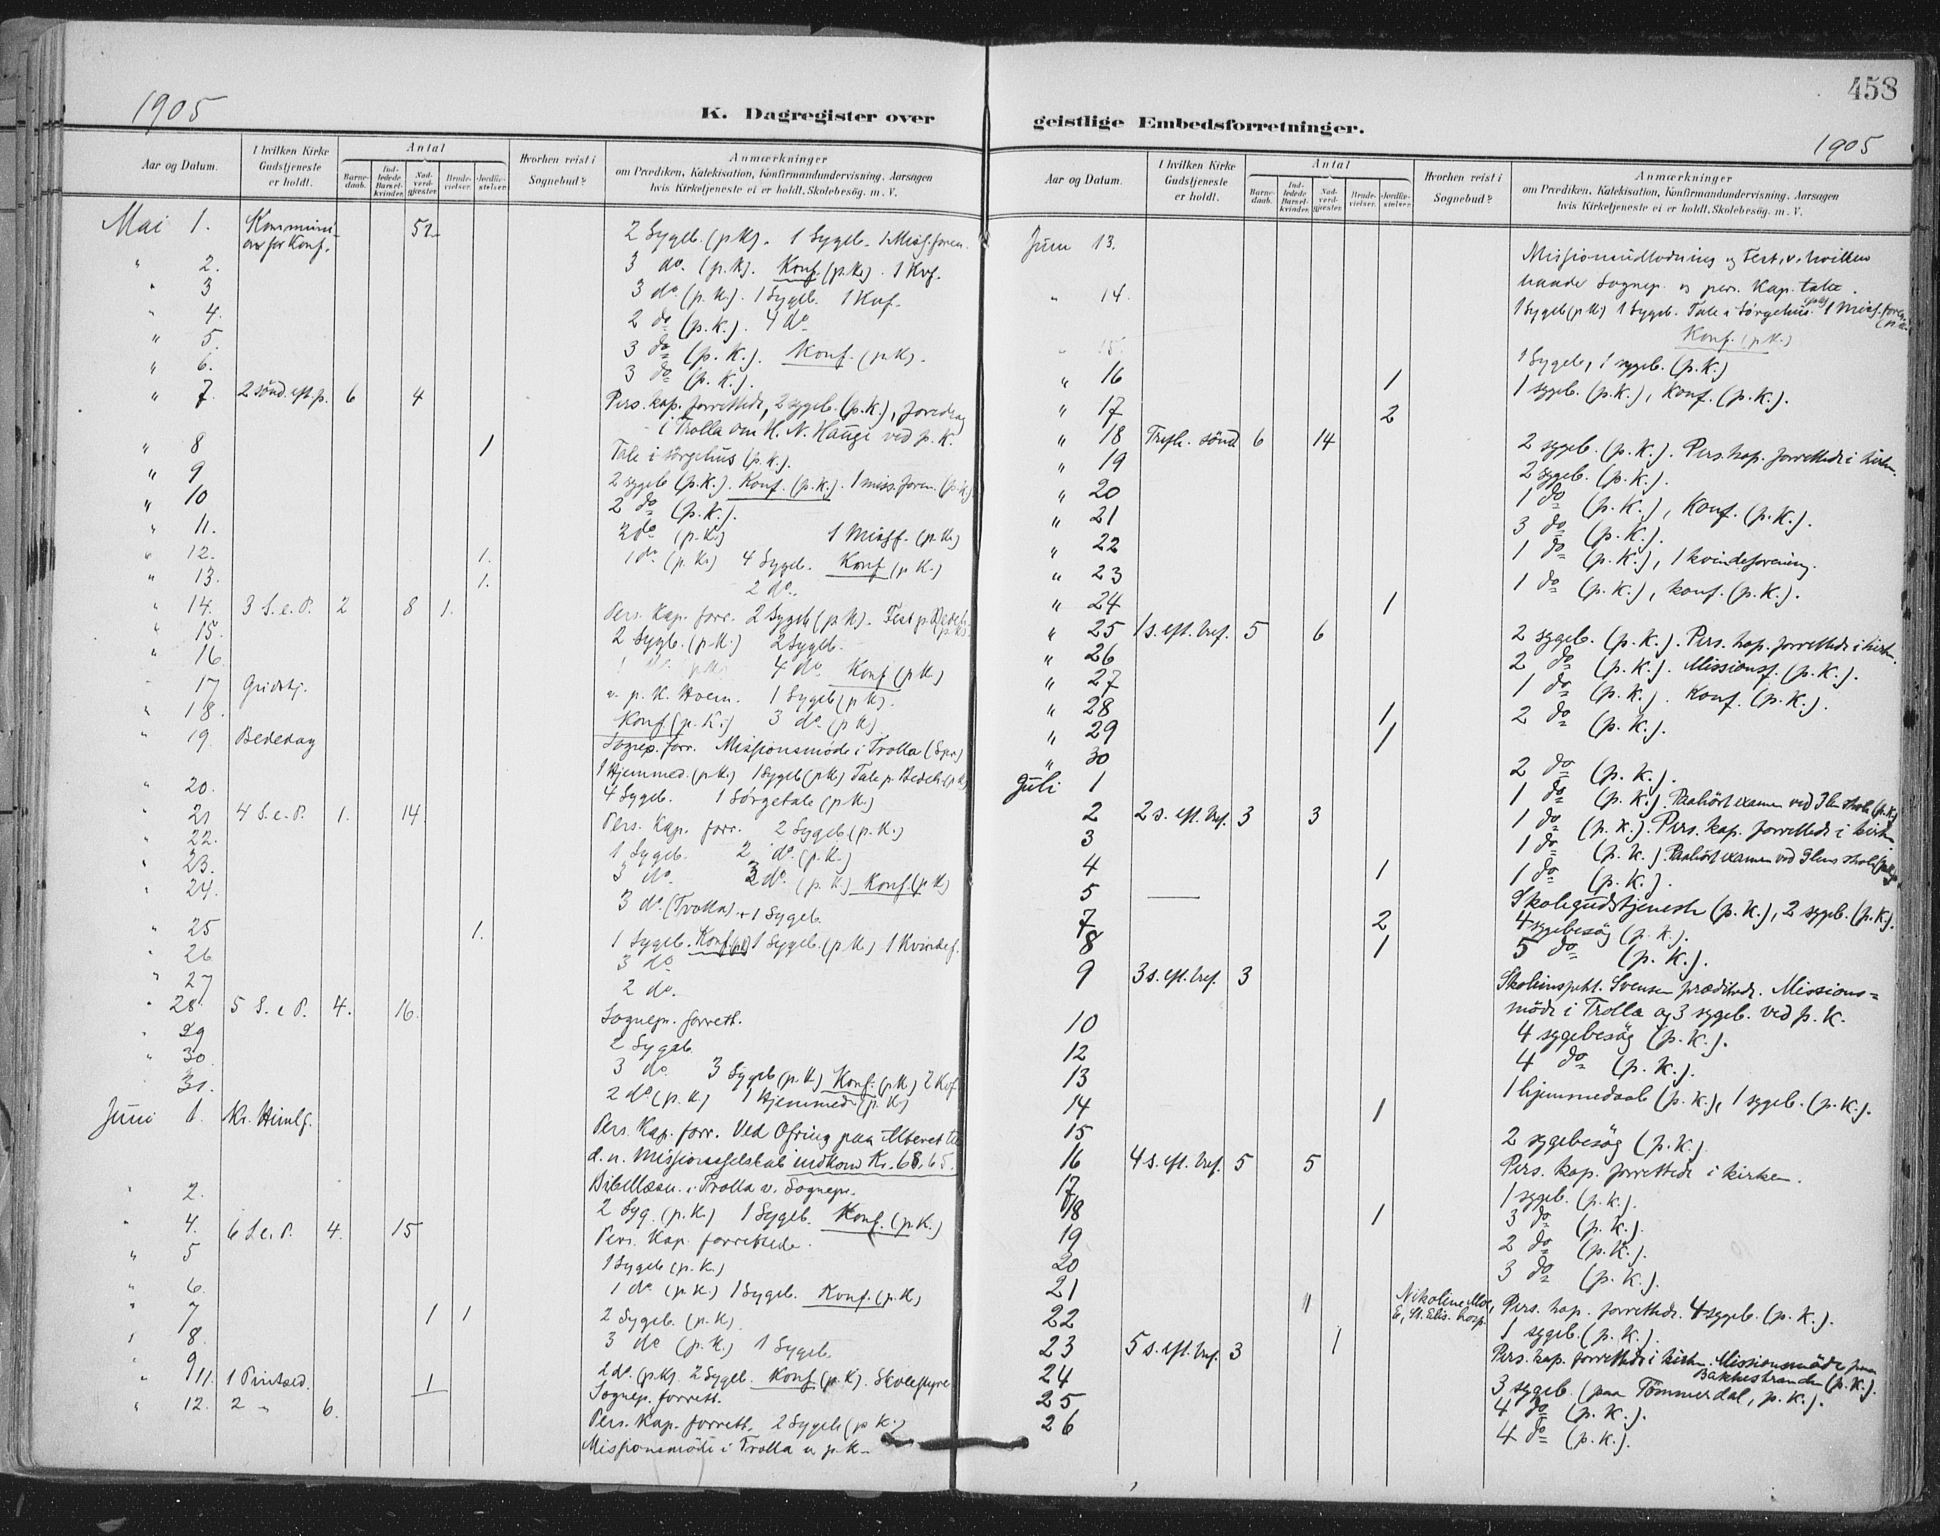 1905
K. Dagregister over
Aar og Datum.
I hvilken Kirke Gudstjeneste er holdt.
Antal
Barne-daab.
Ind-ledede Barsel-kvinder.
Nad-verd-gjester
Brude-vielser.
Jordfæ-stelser.
Hvorhen reist i Sognebud?
Anmærkninger
om Prædiken, Katekisation, Konfirmandundervisning, Aarsagen
hvis Kirketjeneste ei er holdt, Skolebesøg. m. V.
Mai 1. 52 2 Sygeb. (p K). 1 Sygeb. 1 Miss.foren.
" 2. 3 do. (p. K). Konf. (p. K.). 1 Kvf.
" 3 3 do. (p. K). 1 Sygeb. 1 Kvf.
" 4. 2 do (p. K.). 4 do
" 5. 3 do (p. K.). Konf. (p K).
" 6. 3 do (p. K.).
" 7. 2 sønd. eft. p. 6 4 Pers. kap. forrettede, 2 sygeb. (p. K.), foredrag
i Trolla om H. N. Hauge ved p. K.
" 8 1 Tale i sørgehus (p. K.).
" 9 2 sygeb. (p. K.). Konf. (p. K.). 1 miss. foren. (p. K.)
" 10 2 do (p. K.).
" 11. 2 do (p. K.) 1 Missf. (p. K)
" 12. 1. 1 do. (p. K.) 4 Sygeb. Konf (p. K.)
" 13. 1. 2 do.
" 14. 3 S. e. P. 2 8 1. Pers. Kap. forr. 2 Sygeb. (p K).
" 15. 2 Sygb. (p K.) 2 Sygeb.
" 16. 4 do. Konf (p K.)
17 Gudstj. v. p. K. 1 Sygeb (p K).
" 18. Konf (p. K.) 3 do. (p K)
" 19. Bededag Sognep. forr. Missionsmöde i Trolla (Spr.)
1 Hjemmed. (p. K.) 1 Sygeb (p K) Tale p. Bedeh. (p K)
" 20. 4 Sygeb. 1 Sørgetale (p K.)
" 21 4 S. e. P. 1. 14. Pers. Kap. forr. 2 Sygeb (p. K.)
" 22. 1 Sygeb. 2 do. (p. K.)
" 23. 3 do. 2 do. (p. K.) Konf. (p K)
" 24. 3 do. (Trolla) + 1 Sygeb.
" 25 1. 1 Sygeb. Konf. (pK) 1 Sygeb. (p K.) 1 Kvindef.
" 26 3 do
" 27 2 do.
" 28. 5 S. e P. 4. 16. Sognepr. forrett.
" 29 2 Sygeb.
" 30. 3 do. 3 Sygeb (p. K.) Konf. (p K.) 2 Kvf.
31. 2 do (p. K) 1 Hjemmed. (p. K)
Juni 1. Kr. Himlf. Pers. Kap. forr. Ved Ofring paa Alteret til
d. n. Missionsselskab indkom Kr. 68,65.
Bibellæsn. i Trolla v. Sognepr.
" 2. 2 Syg. (p. K.) 1 Sygeb. Konf. (p. K.)
" 4. 6 S. e. P. 4. 15 Pers. Kap. forrettede.
" 5 1 Sygeb (p. K.)
" 6. 1 do (p. K.) 1 Sygeb. Konf. (p. K)
" 7 1 1 2 Sygeb. (p. K).
" 8. 3 do (p. K.) 1 Sygeb.
" 9 2 do. (p. K). 2 Sygeb. Konf. (p. K). Skolestyre
" 11. 1 Pintsed. 1 Sognep. forrett.
" 12. 2 " 6. Pers. Kap. forrett. 2 Sygeb (p. K.)
Missionsmöde i Trolla v. p. K.
458
geistlige Embedsforretninger.
1905
Aar og Datum.
I hvilken Kirke Gudstjeneste er holdt.
Antal
Barne-daab.
Ind-ledede Barsel-kvinder.
Nad-verd-gjester
Brude-vielser.
Jordfæ-stelser.
Hvorhen reist i Sognebud?
Anmærkninger
om Prædiken, Katekisation, Konfirmandundervisning, Aarsagen
hvis Kirketjeneste ei er holdt, Skolebesøg. m. V.
Juni 13. Missionsudlodning og Fest, v. hvilken
baade Sognep. og pers. Kap. talte.
" 14. 1 Sygeb (p K) 1 Sygeb. Tale i Sørgehus (pK) 1 Miss. foren. (p. K.
Konf. (p K.)
" 15. 1 Sygeb, 1 sygeb. (p. K.)
" 16 1 1 sygeb. (p. K.), Konf. (p. K.).
" 17 2
" 18 Trefh. sønd 6 14 2 sygeb. (p. K.). Pers. kap. forrettede i kirken.
" 19 2 sygeb. (p. K.).
" 20 1 do (p. K.), Konf. (p. K.).
" 21 3 do (p. K.).
" 22 1 do (p. K.), 1 kvindeforening.
" 23 1 do (p. K.), konf. (p. K.).
" 24 1
" 25 1 s. eft. tref. 5 6 2 sygeb. (p. K.). Pers. kap. forrettede i kirken.
" 26 2 do (p. K.). Missionsf. (p. K.).
" 27 1 do (p. K.). Konf. (p. K.).
" 28 1 2 do (p. K.).
" 29 1
" 30 2 do (p. K.).
Juli 1 1 do (p. K.). Paahört examen ved Ilen skole (p. K.)
2 2 s. eft. tref. 3 3 1 do (p. K.). Pers. kap. forrettede i kirken
3 1 do (p. K.). Paahört examen ved Ilens skole
4 1 1 do (p. K.).
5 Skolegudstjeneste (p. K.), 2 sygeb. (p. K.).
7 2 4 sygebesøg (p. K.).
8 1 5 do (p. K.).
9 3 s. eft. tref. 3 Skoleinspekt. Svensen prædikede. Missions=
möde i Trolla og 3 sygeb. ved p. K.
10 4 sygebesøg (p. K.).
12 4 do (p. K.).
13 1 hjemmedaab (p. K.), 1 sygeb. (p. K.).
14 1
15 2 sygebesøg (p. K.)
16 4 s. eft. tref. 5 5 Pers. kap. forrettede i kirken.
17 1 sygeb. (p. K.).
18 1 3 do (p. K.).
19 2 do (p. K.).
20 3 do (p. K.).
21
22 1 Nikoline Moe, E, St. Elis. hosp. Pers. kap. forrettede. 4 sygeb. (p. K.).
1 sygeb. (p. K.).
23 5 s. eft. tref. 3 1 Pers. kap. forrettede i kirken. Missionsmöde paa
Bakkestranden (p. K.).
24 3 sygeb. (paa Tömmerdal, p. K.).
25 4 do (p. K.).
26 4 do (p. K.).